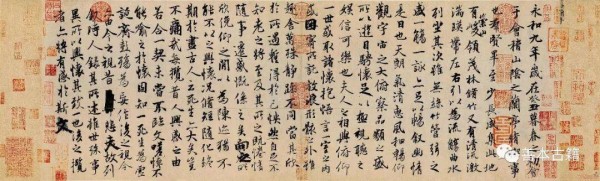 永和九年歲在癸丑暮春之初會
于會稽山陰之蘭亭脩稧事
也羣賢畢至少長咸集此地
有崇山峻領茂林脩竹又有清流激
湍暎帶左右引以為流觴曲水
列坐其次雖無絲竹管弦之
盛一觴一詠亦足以暢敘幽情
是日也天朗氣清惠風和暢仰
觀宇宙之大俯察品類之盛
所以遊目騁懷足以極視聽之
娛信可樂也夫人之相與俯仰
一世或取諸懷抱悟言一室之內
或因寄所託放浪形骸之外雖
趣舍萬殊靜躁不同當其欣
於所遇暫得於己怏然自足不
知老之將至及其所之既惓情
隨事遷感慨係之矣向之所
欣俛仰之閒以為陳迹猶不
能不以之興懷況脩短隨化終
期於盡古人云死生亦大矣豈
不痛哉每攬昔人興感之由
若合一契未嘗不臨文嗟悼不
能喻之於懷固知一死生為虛
誕齊彭殤為妄作後之視今
亦由今之視昔悲夫故列
敘時人錄其所述雖世殊事
異所以興懷其致一也後之攬
者亦將有感於斯文
善本古籍